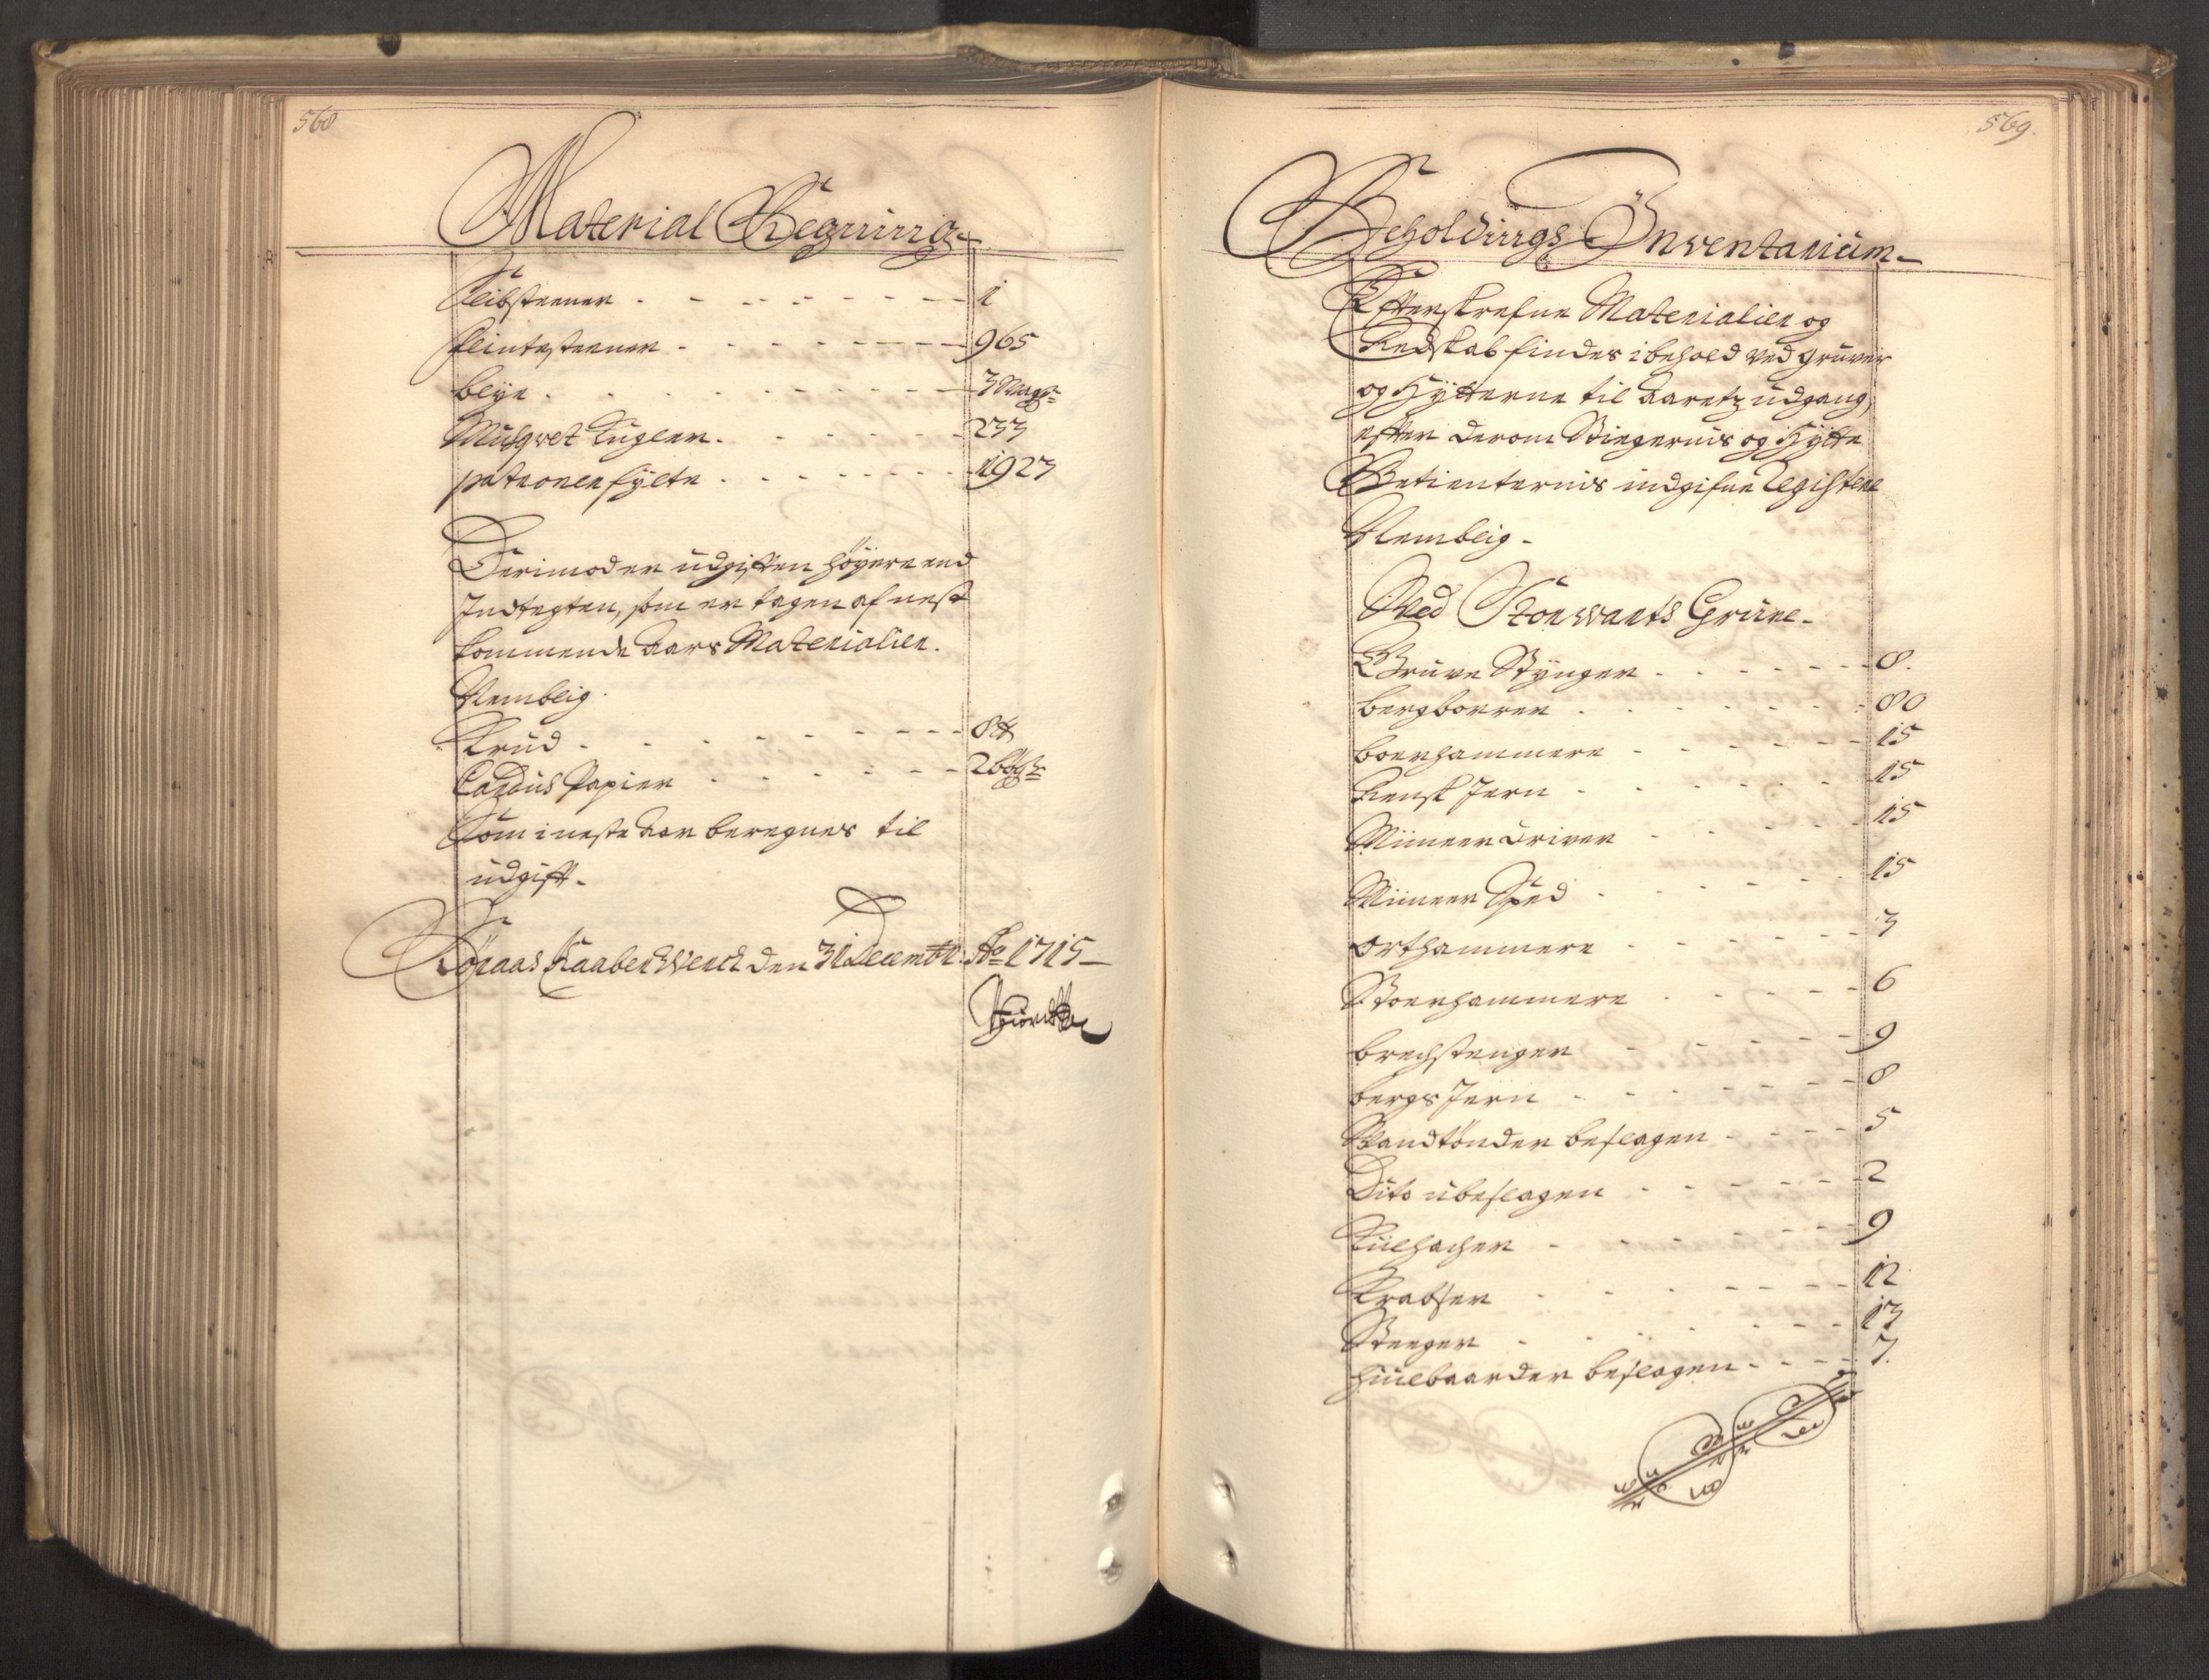 568
Material Regning
Slibsteener 1
flintesteener 965
blye 3 Mrg
Musqvet Kugler 233
patroner fylte 1923
Derimod er udgiften høyere end
Indtegten, som er tagen af nest
kommende Aars Materialier.
Nemblig.
Krud 8 ℔
Cardus Papier 2 bøgr
Som i neste Aar beregnes til
udgift.
Röraas Kaaber Werck den 31 Decembr: Ao 1715
569.
Beholdings Inventarium
Efterskrefne Materialier og
Redskab findes i behold ved gruver
og Hytterne til Aaretz udgang,
efter derom Stiegernis og Hytte
Betienternis indgifne Registere
Nemblig
Ved Storwarts Grúve
Gruve Stynger 8.
bergborrer 80
boerhammere 15
Rensk Jern 15
Miineer Driver 15
Miineer Sped 15
orthammere 3
Stoerhammere 6
brechstenger 9
bergs Jern 8
Wandtönder beslagen 5
Dito ubeslagen 2
Kiilhacher 9
Krabser 12
Steeger 13
hiúlbaarder beslagen 7.